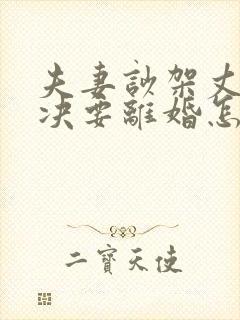 夫妻訟架丈
决要離婚怎
二寶天使